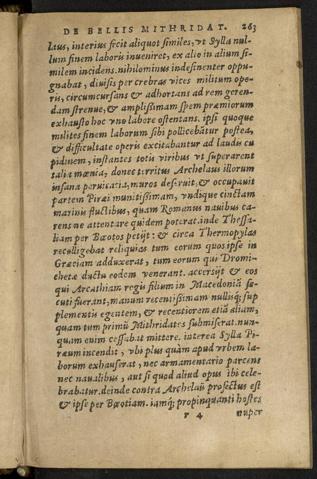 DE BELLIS MITHRIDAT. 263
laus, interius fecit aliquot similes, vt Sylla nul-
lum finem laboris inueniret, ex alio in alium si-
milem incidens. nihilominus indesinenter oppu-
gnabat, diuisis per crebras vices militum ope-
ris, circumcursans & adhortans ad rem geren-
dam strenue, & amplissimam spem præmiorum
exhausto hoc vno labore ostentans. ipsi quoque
milites finem laborum sibi pollicebātur postea,
& difficultate operis excitabantur ad laudis cu
pidinem, instantes totis viribus vt superarent
talia mœnia, donec territus Archelaus illorum
insana peruicacia, muros deseruit, & occupauit
partem Piræi munitissimam, vndique cinctam
marinis fluctibus, quam Romanus nauibus ca-
rens ne attentare quidem poterat. inde Thessa-
liam per Bœotos petijt: & circa Thermopylas
recolligebat reliquias tum eorum quos ipse in
Græciam adduxerat, tum eorum qui Dromi-
chetæ ductu eodem venerant. accersijt & eos
qui Arcathiam regis filium in Macedoniā se-
cuti fuerant, manum recentissimam nullisq; sup
plementis egentem, & recentiorem etiā aliam,
quam tum primū Mithridates submiserat. nun-
quam enim cessabat mittere. interea Sylla Pi-
ræum incendit, vbi plus quàm apud vrbem la-
borum exhauserat, nec armamentario parcens
nec naualibus, aut si quod aliud opus ibi cele-
brabatur. deinde contra Archelaū profectus est
& ipse per Bœotiam. iamq; propinquanti hostes
r 4 nuper